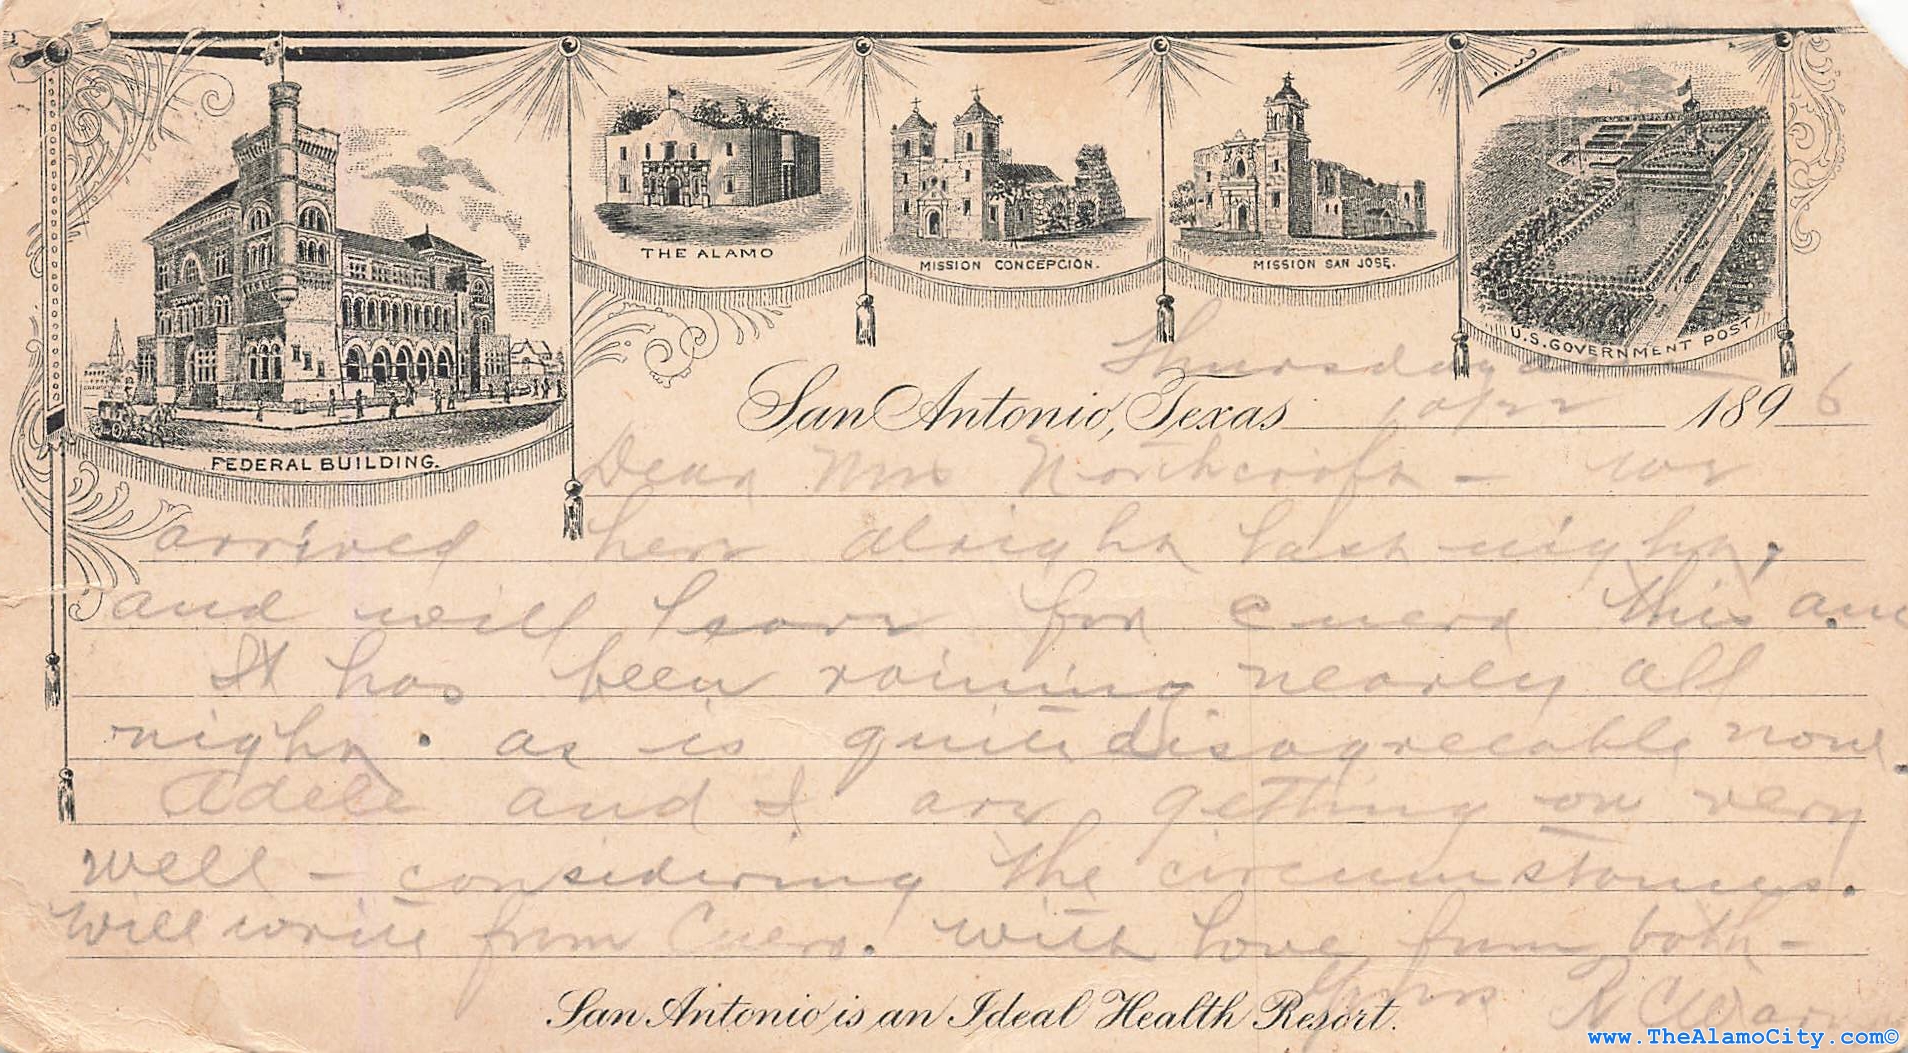 FEDERAL BUILDING.
THE ALAMO
MISSION CONCEPCIÓN.
MISSION SAN JOSE.
U.S. GOVERNMENT POST
Thursday
San Antonio, Texas 10/22 1896
Dear Mrs Northcroft - we
arrived here alright last night,
and will leave for Cuero this am
It has been raining nearly all
night. as is quite disagreeable now
Adele and I are getting on very
well - considering the circumstances.
Will write from Cuero. with love from both -
Yours R C
San Antonio is an Ideal Health Resort.
www.TheAlamoCity.com©